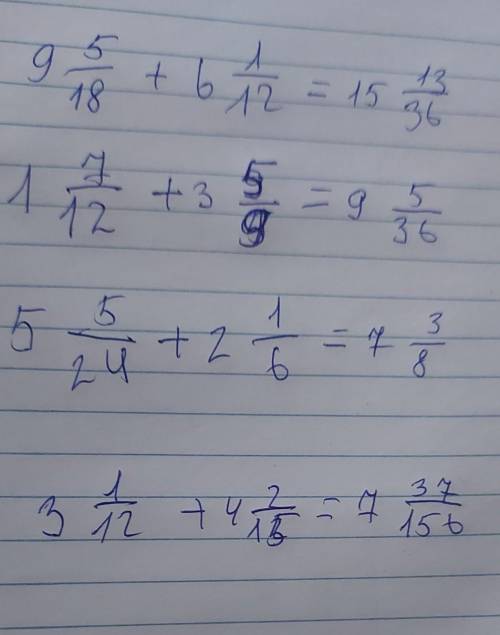 9 5/18 + 6 1/12 = 15 13/36
1 7/12 + 3 5/9 = 9 5/36
5 5/24 + 2 1/6 = 7 3/8
3 1/12 + 4 2/13 = 7 37/156